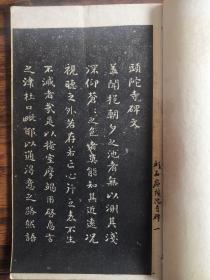 頭陀寺碑文
蓋聞挹朝夕之池者無以測其淺
深仰蒼〻之色者能知其近遠況
視聽之外若存若亡心行之表不生
不滅者哉是以掩室摩竭用啟息言
之津杜口毗耶以通得意之路然語
頭陀寺碑 一